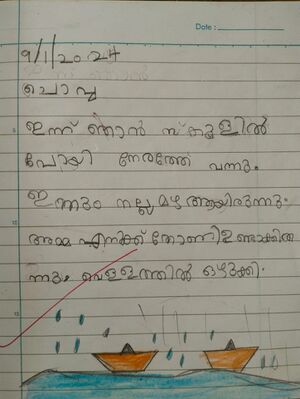 Date :
9/1/2024
ചൊവ്വ
ഇന്ന് ഞാൻ സ്കൂളിൽ
പോയി നേരത്തേ വന്നു.
ഇന്നും നല്ല മഴ ആയിരുന്നു.
അമ്മ എനിക്ക് തോണി ഉണ്ടാക്കിത
ന്നു. വെള്ളത്തിൽ ഒഴുക്കി.